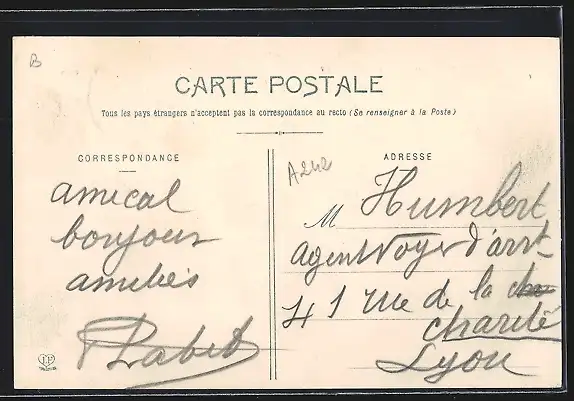 B
CARTE POSTALE
Tous les pays étrangers n'acceptent pas la correspondance au recto (Se renseigner à la Poste)
CORRESPONDANCE
amical
bonjour
amitiés
ADRESSE
A242
M Humbert
agent voyer d'arrt
41 rue de la ch
charité
Lyon